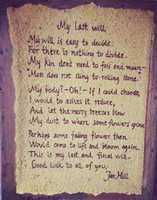 My Last will.
My will is easy to decide.
For there is nothing to divide.
My Kin don't need to fuss and moan—
Moss does not cling to rolling stone.
My body?—Oh!—If I could choose,
I would to ashes it reduce,
And let the merry breezes blow
My dust to where some flowers grow.
Perhaps some fading flower then
Would come to life and bloom again.
This is my last and final will.
Good luck to all of you.
Joe Hill